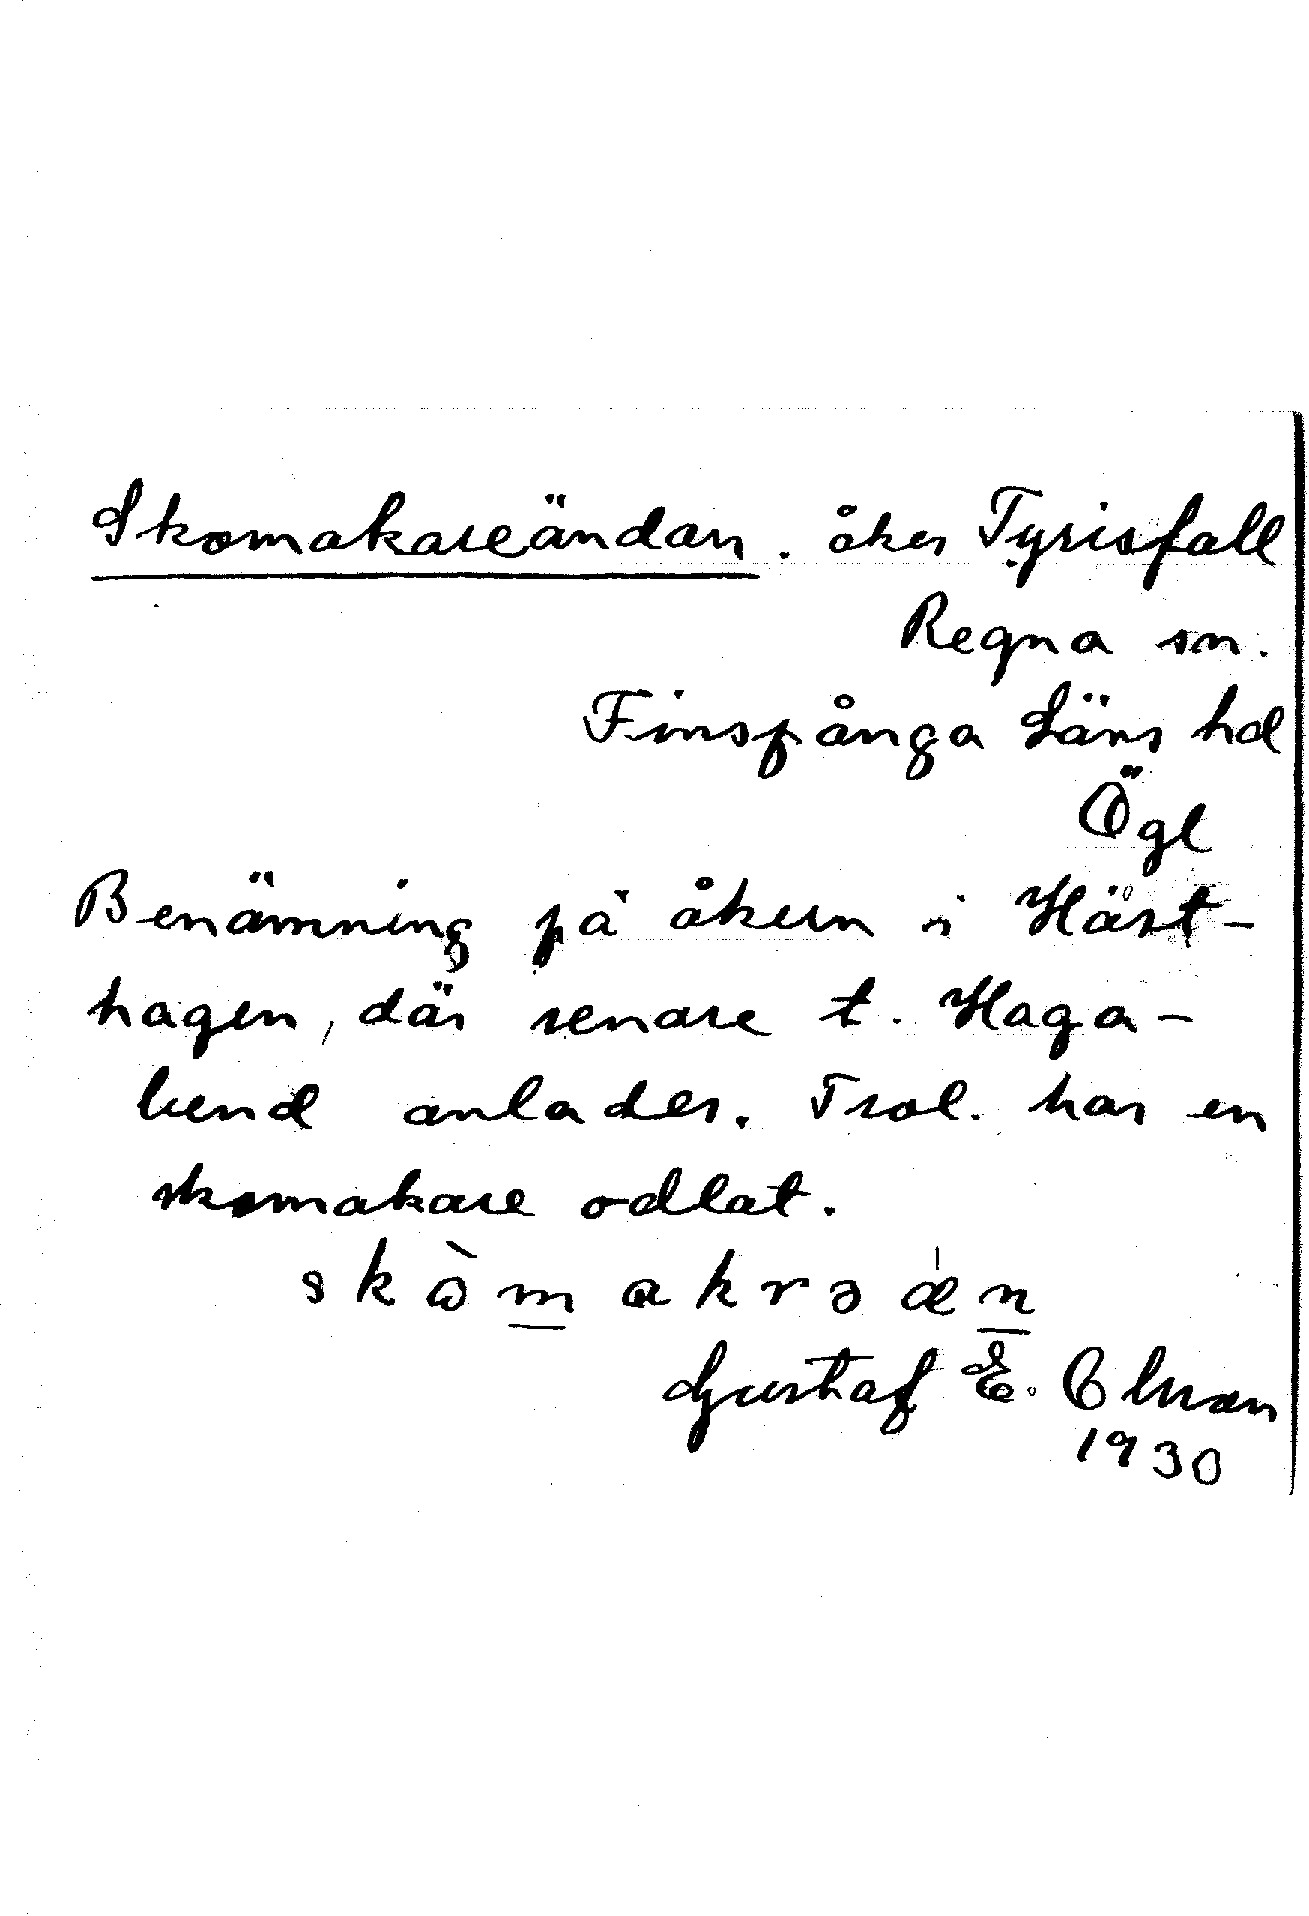 Skomakareändan. åker Tyrisfall
Regna sn.
Finspånga Läns hd
Ögl
Benämning på åkern i Häst-
hagen, där senare t. Haga-
lund anlades. Trol. har en
skomakare odlat.
Gustaf E.
1930